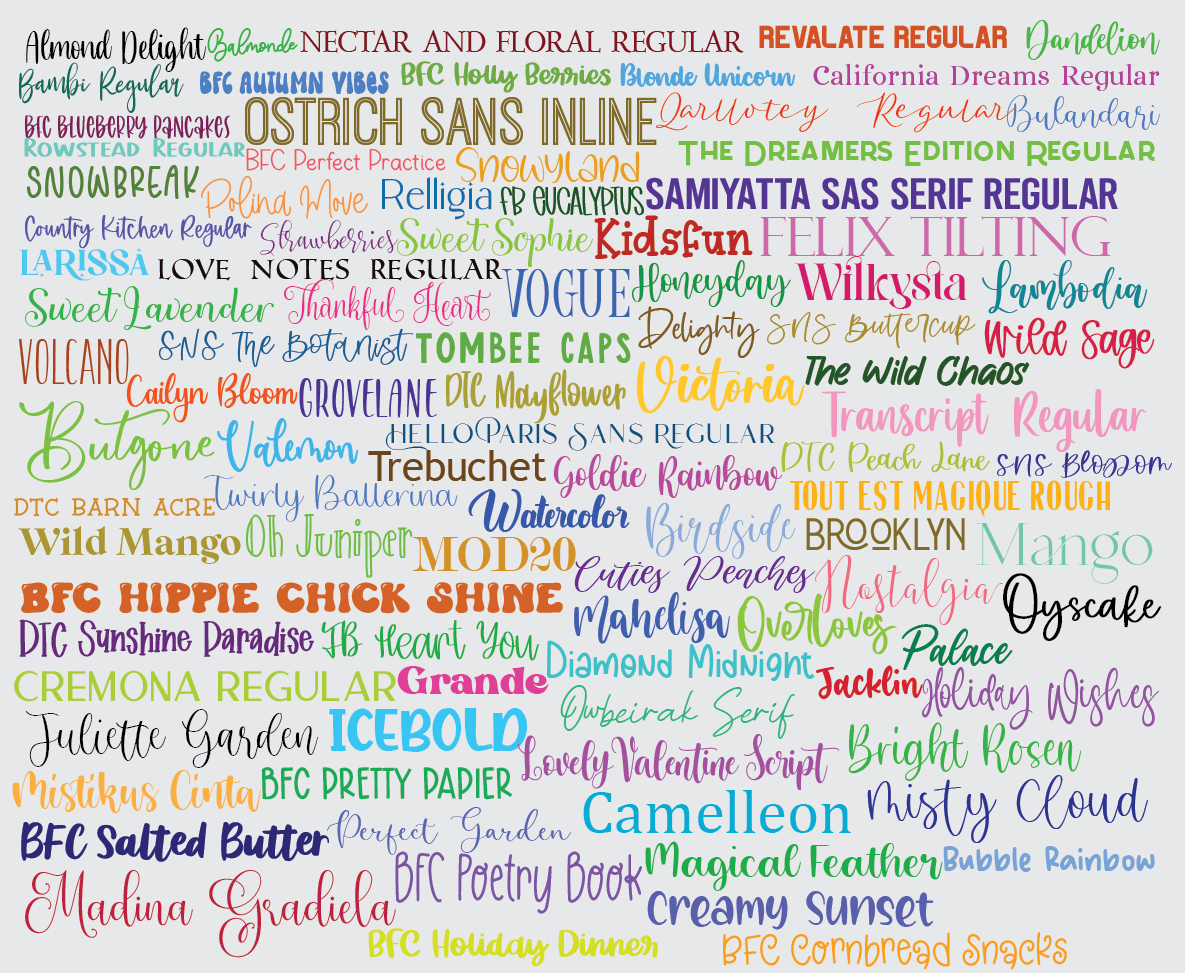 Almond Delight Balmonde NECTAR AND FLORAL REGULAR REVALATE REGULAR Dandelion
Bambi Regular BFC AUTUMN VIBES BFC Holly Berries Blonde Unicorn California Dreams Regular
BFC BLUEBERRY PANCAKES OSTRICH SANS INLINE Qarllotey Regular Bulandari
ROWSTEAD REGULAR BFC Perfect Practice Snowyland THE DREAMERS EDITION REGULAR
SNOWBREAK Polina Move Relligia FB EUCALYPTUS SAMIYATTA SAS SERIF REGULAR
Country Kitchen Regular Strawberries Sweet Sophie KidsFun FELIX TILTING
LARISSA LOVE NOTES REGULAR VOGUE Honeyday Wilkysta Lambodia
Sweet Lavender Thankful Heart Delighty SNS Buttercup Wild Sage
VOLCANO SNS The Botanist TOMBEE CAPS The Wild Chaos
Cailyn Bloom GROVELANE DTC Mayflower Victoria Transcript Regular
Butgone Valemon HELLOPARIS SANS REGULAR
Trebuchet Goldie Rainbow DTC Peach Lane SNS Blossom
DTC BARN ACRE Twirly Ballerina Watercolor Birdside TOUT EST MAGIQUE ROUGH
Wild Mango Oh Juniper MOD20 BROOKLYN Mango
BFC HIPPIE CHICK SHINE Cuties Peaches Nostalgia Oyscake
DTC Sunshine Paradise FB Heart You Mahelisa OverLoves Palace
CREMONA REGULAR Grande Diamond Midnight Jacklin Holiday Wishes
Juliette Garden ICEBOLD Owbeirak Serif
Mistikus Cinta BFC PRETTY PAPIER Lovely Valentine Script Bright Rosen
BFC Salted Butter Perfect Garden Camelleon Misty Cloud
Madina Gradiela BFC Poetry Book Magical Feather Bubble Rainbow
Creamy Sunset
BFC Holiday Dinner BFC Cornbread Snacks